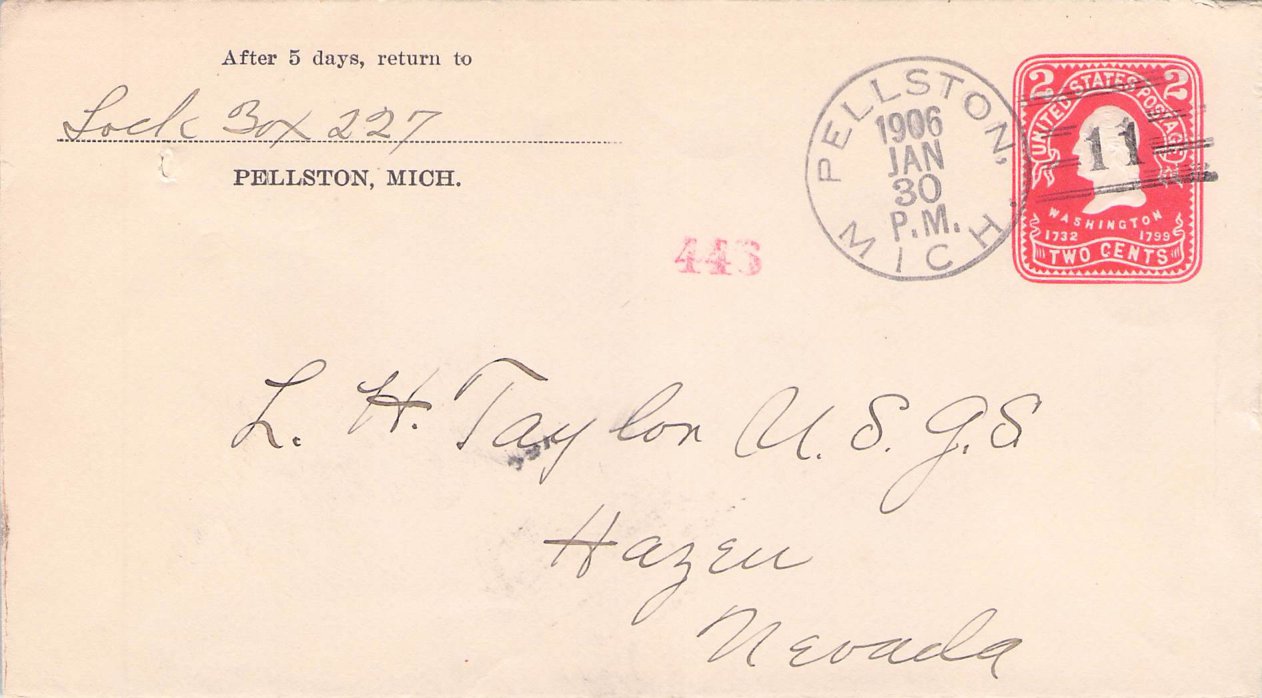 After 5 days, return to
Lock Box 227
PELLSTON, MICH.
PELLSTON, MICH.
1906
JAN
30
P.M.
11
2 2
UNITED STATES POSTAGE
WASHINGTON
1732 1799
TWO CENTS
L. H. Taylor U.S.G.S
Hazen
Nevada